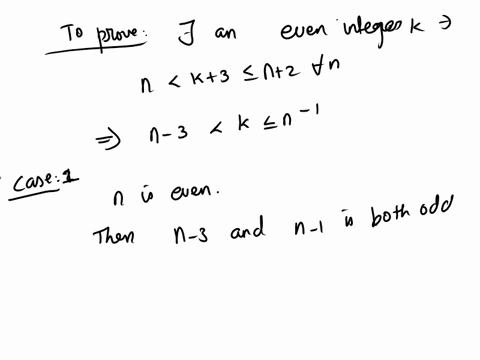 To prove: ∃ an even integer k ∋
n < k+3 ≤ n+2 ∀n
⇒ n-3 < k ≤ n-1
Case:1
n is even.
Then n-3 and n-1 is both odd